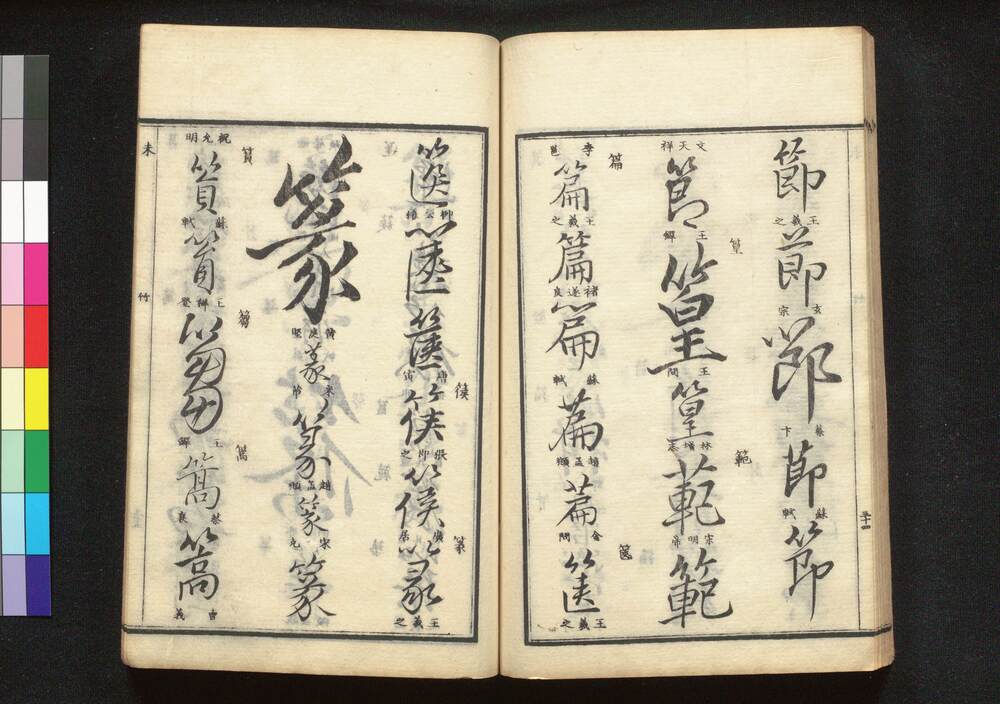 節
王羲之
節
玄宗
節
節
蘇軾
節
文天祥
節
王鐸
篁
篁
王問
篁
林増志
範
範
宋明帝
範
李邕
篇
篇
王羲之
篇
褚遂良
篇
蘇軾
篇
趙孟頫
篇
金問
篋
篋
王羲之
篋
柳公権
篋
篋
唐寅
篌
篌
篌
篆
篆
王羲之
篆
黄庭堅
篆
米芾
篆
趙孟頫
篆
宋克
篆
祝允明
篔
篔
蘇軾
篔
篘
篘
王鐸
篙
篙
蔡襄
篙
未
竹